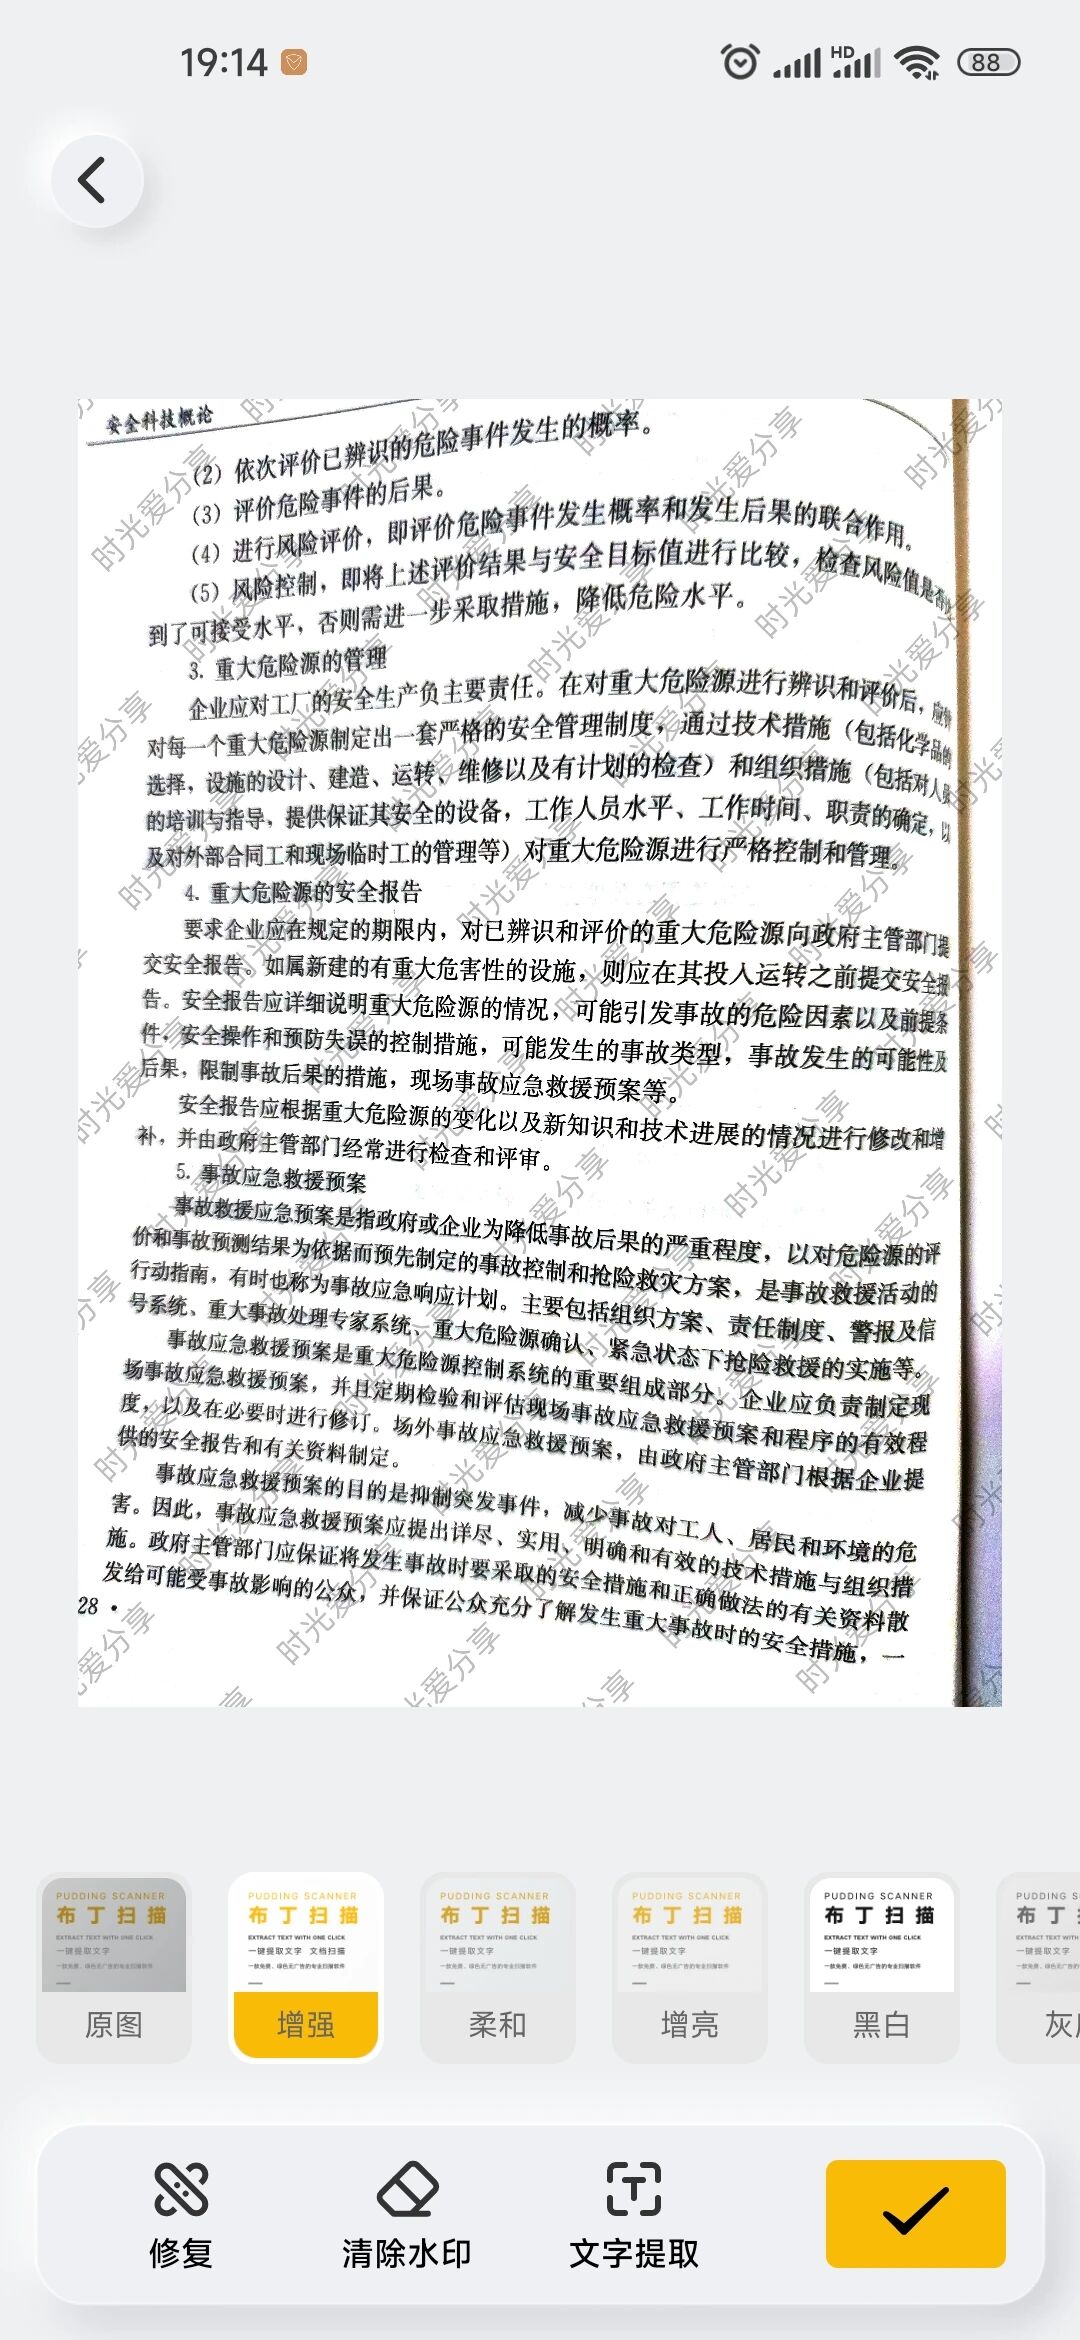 19:14
HD
88
安全科技概论
(2) 依次评价已辨识的危险事件发生的概率。
(3) 评价危险事件的后果。
(4) 进行风险评价，即评价危险事件发生概率和发生后果的联合作用。
(5) 风险控制，即将上述评价结果与安全目标值进行比较，检查风险值是否
到了可接受水平，否则需进一步采取措施，降低危险水平。
3. 重大危险源的管理
企业应对工厂的安全生产负主要责任。在对重大危险源进行辨识和评价后，应
对每一个重大危险源制定出一套严格的安全管理制度，通过技术措施（包括化学品的
选择，设施的设计、建造、运转、维修以及有计划的检查）和组织措施（包括对人员
的培训与指导，提供保证其安全的设备，工作人员水平、工作时间、职责的确定，以
及对外部合同工和现场临时工的管理等）对重大危险源进行严格控制和管理。
4. 重大危险源的安全报告
要求企业应在规定的期限内，对已辨识和评价的重大危险源向政府主管部门提
交安全报告。如属新建的有重大危害性的设施，则应在其投入运转之前提交安全报
告。安全报告应详细说明重大危险源的情况，可能引发事故的危险因素以及前提条
件，安全操作和预防失误的控制措施，可能发生的事故类型，事故发生的可能性及
后果，限制事故后果的措施，现场事故应急救援预案等。
安全报告应根据重大危险源的变化以及新知识和技术进展的情况进行修改和增
补，并由政府主管部门经常进行检查和评审。
5. 事故应急救援预案
事故救援应急预案是指政府或企业为降低事故后果的严重程度，以对危险源的评
价和事故预测结果为依据而预先制定的事故控制和抢险救灾方案，是事故救援活动的
行动指南，有时也称为事故应急响应计划。主要包括组织方案、责任制度、警报及信
号系统、重大事故处理专家系统、重大危险源确认、紧急状态下抢险救援的实施等。
事故应急救援预案是重大危险源控制系统的重要组成部分。企业应负责制定现
场事故应急救援预案，并且定期检验和评估现场事故应急救援预案和程序的有效程
度，以及在必要时进行修订。场外事故应急救援预案，由政府主管部门根据企业提
供的安全报告和有关资料制定。
事故应急救援预案的目的是抑制突发事件，减少事故对工人、居民和环境的危
害。因此，事故应急救援预案应提出详尽、实用、明确和有效的技术措施与组织措
施。政府主管部门应保证将发生事故时要采取的安全措施和正确做法的有关资料散
发给可能受事故影响的公众，并保证公众充分了解发生重大事故时的安全措施，一
28 ·
时光爱分享
PUDDING SCANNER
布丁扫描
EXTRACT TEXT WITH ONE CLICK
一键提取文字
原图
PUDDING SCANNER
布丁扫描
EXTRACT TEXT WITH ONE CLICK
一键提取文字 文档扫描
增强
PUDDING SCANNER
布丁扫描
EXTRACT TEXT WITH ONE CLICK
一键提取文字
柔和
PUDDING SCANNER
布丁扫描
EXTRACT TEXT WITH ONE CLICK
一键提取文字
增亮
PUDDING SCANNER
布丁扫描
EXTRACT TEXT WITH ONE CLICK
一键提取文字
黑白
修复
清除水印
文字提取